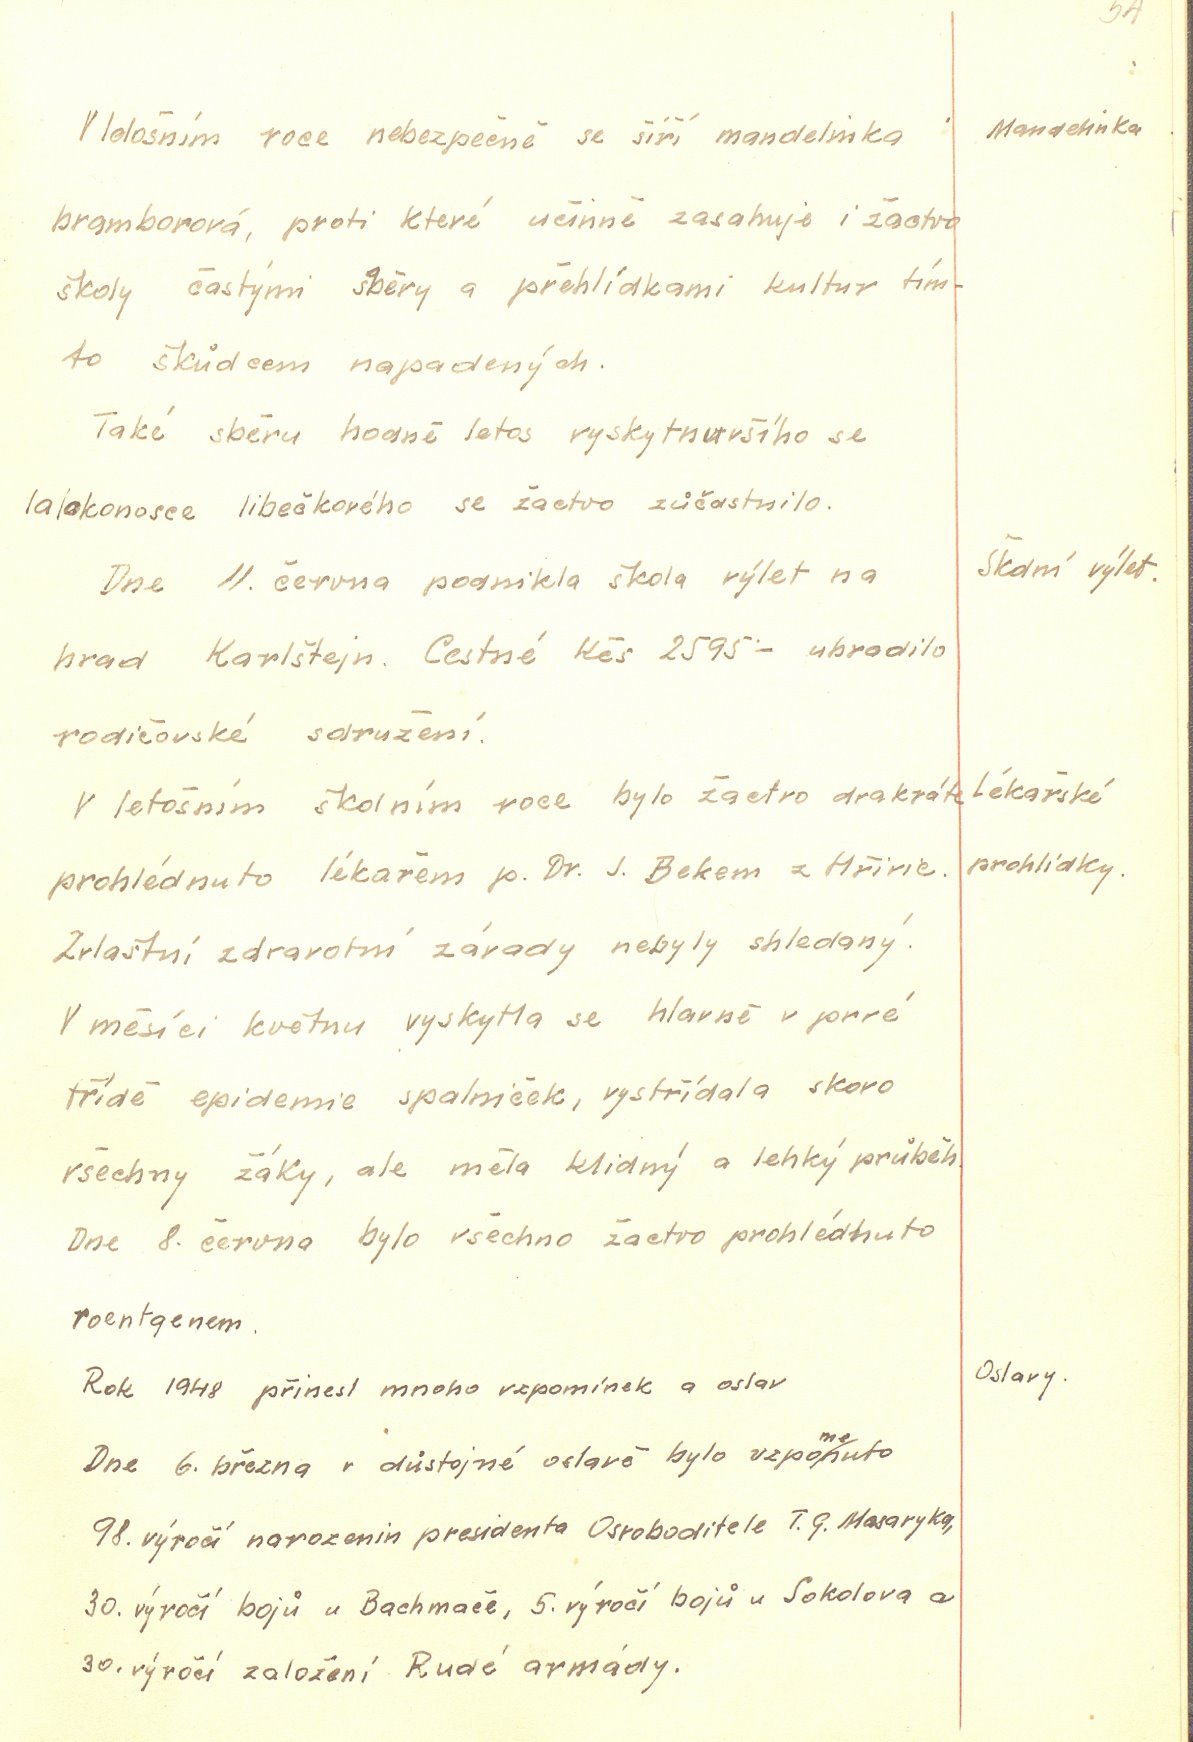 54
V letošním roce nebezpečně se šíří mandelinka
Mandelinka
bramborová, proti které účinně zasahuje i žactvo
školy častými sběry a přehlídkami kultur tím-
to škůdcem napadených.
Také sběru hodně letos vyskytnuvšího se
lalokonosce libečkového se žactvo zúčastnilo.
Dne 11. června podnikla škola výlet na
Školní výlet.
hrad Karlštejn. Cestné Kčs 2595·- uhradilo
rodičovské sdružení.
V letošním školním roce bylo žactvo dvakráte
Lékařské
prohlédnuto lékařem p. Dr. J. Bekem z Hřivic.
prohlídky.
Zvlaštní zdravotní závady nebyly shledaný.
V měsíci květnu vyskytla se hlavně v prvé
třídě epidemie spalniček, vystřídala skoro
všechny žáky, ale měla klidný a lehký průběh.
Dne 8. června bylo všechno žactvo prohlédnuto
roentgenem.
Rok 1948 přinesl mnoho vzpomínek a oslav
Oslavy.
Dne 6. března v důstojné oslavě bylo vzpomenuto
98. výročí narozenin presidenta Osvoboditele T. G. Masaryka,
30. výročí bojů u Bachmače, 5. výročí bojů u Sokolova a
30. výročí založení Rudé armády.